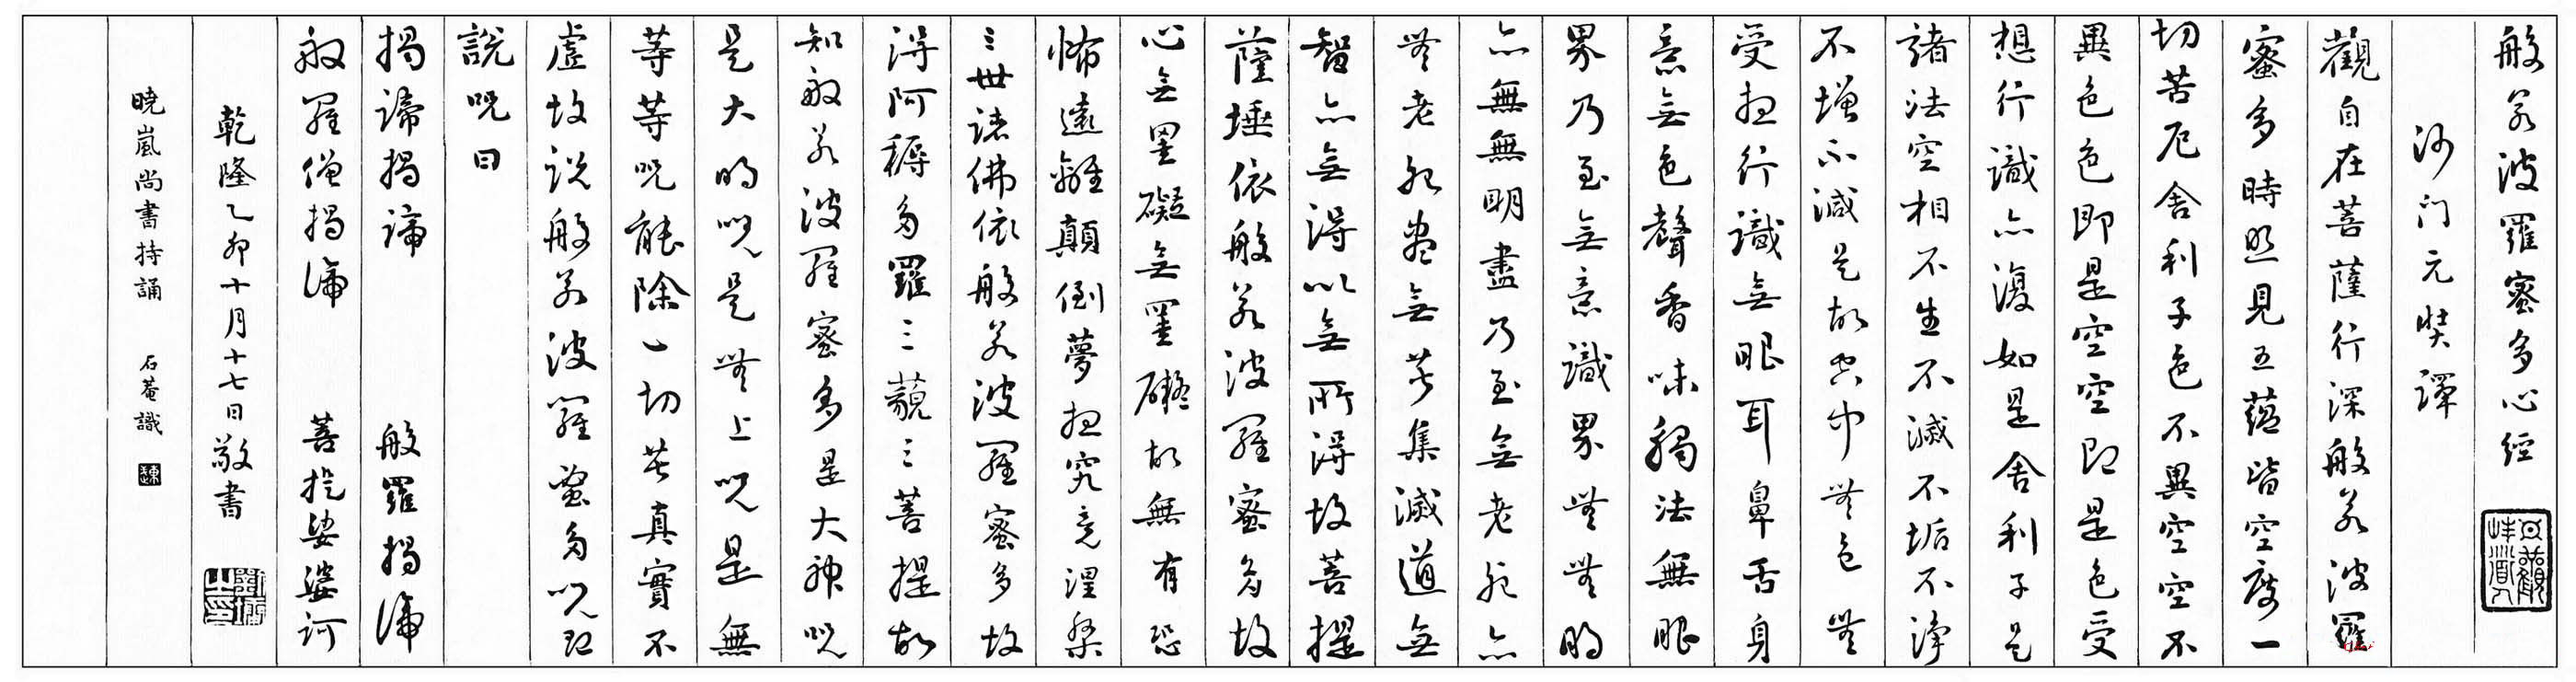 般若波羅蜜多心經
沙门元奘譯
觀自在菩薩行深般若波羅
蜜多時照見五蘊皆空度一
切苦厄舍利子色不異空空不
異色色即是空空即是色受
想行識亦復如是舍利子是
諸法空相不生不滅不垢不淨
不增不減是故空中無色無
受想行識無眼耳鼻舌身
意無色聲香味觸法無眼
界乃至無意識界無無明
亦無無明盡乃至無老死亦
無老死盡無苦集滅道無
智亦無得以無所得故菩提
薩埵依般若波羅蜜多故
心無罣礙無罣礙故無有恐
怖遠離顛倒夢想究竟涅槃
三世諸佛依般若波羅蜜多故
得阿耨多羅三藐三菩提故
知般若波羅蜜多是大神咒
是大明咒是無上咒是無
等等咒能除一切苦真實不
虛故說般若波羅蜜多咒即
說咒曰
揭諦揭諦 般羅揭諦
般羅僧揭諦 菩提娑婆訶
乾隆乙卯十月十七日敬書
曉嵐尚書持誦 石菴識